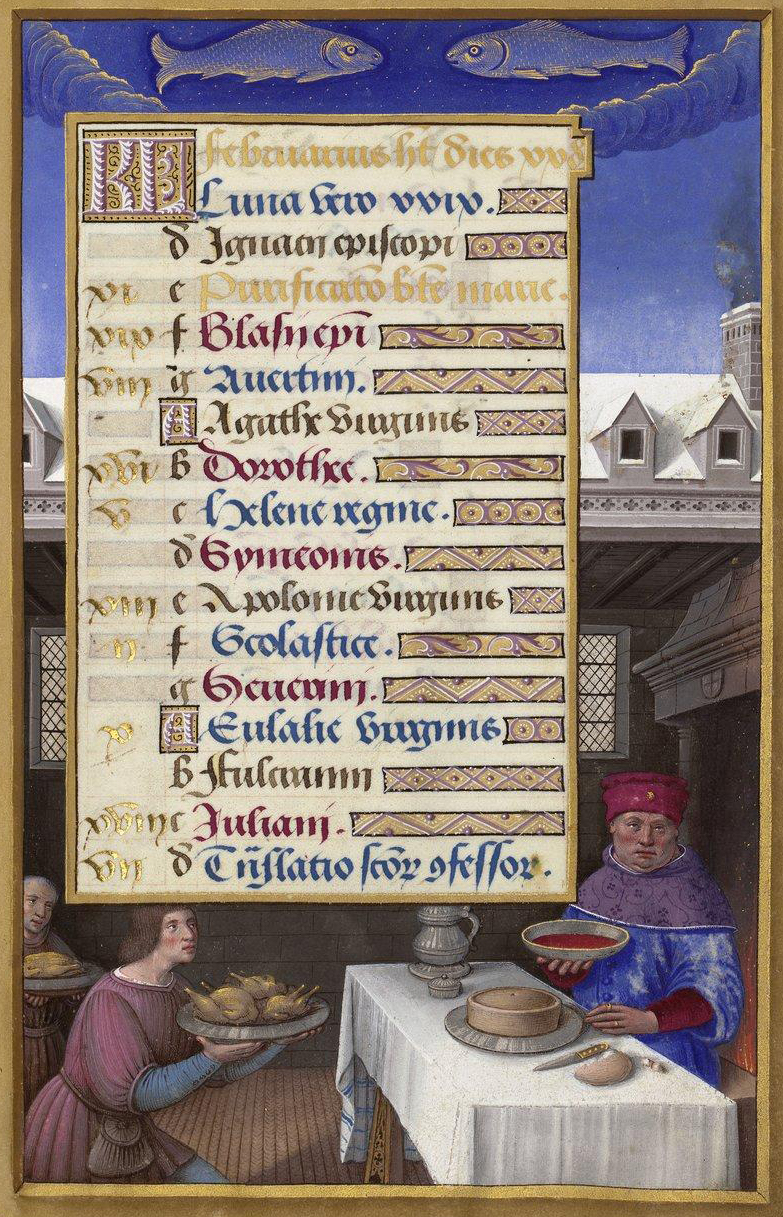 KL februarius ht dies xxviii
Luna vero xxix.
d Ignacii episcopi
xi e Purificatio bte marie.
xix f Blasii epi
viii g Avertini.
A Agathe virginis
xvi b Dorothee.
v c Helene regine.
d Symeonis.
xiii e Apolonie virginis
ii f Scolastice.
g Severini.
x A Eulalie virginis
b Fulcranni
xviii c Juliani.
vii d Tnslatio scor 9fessor.